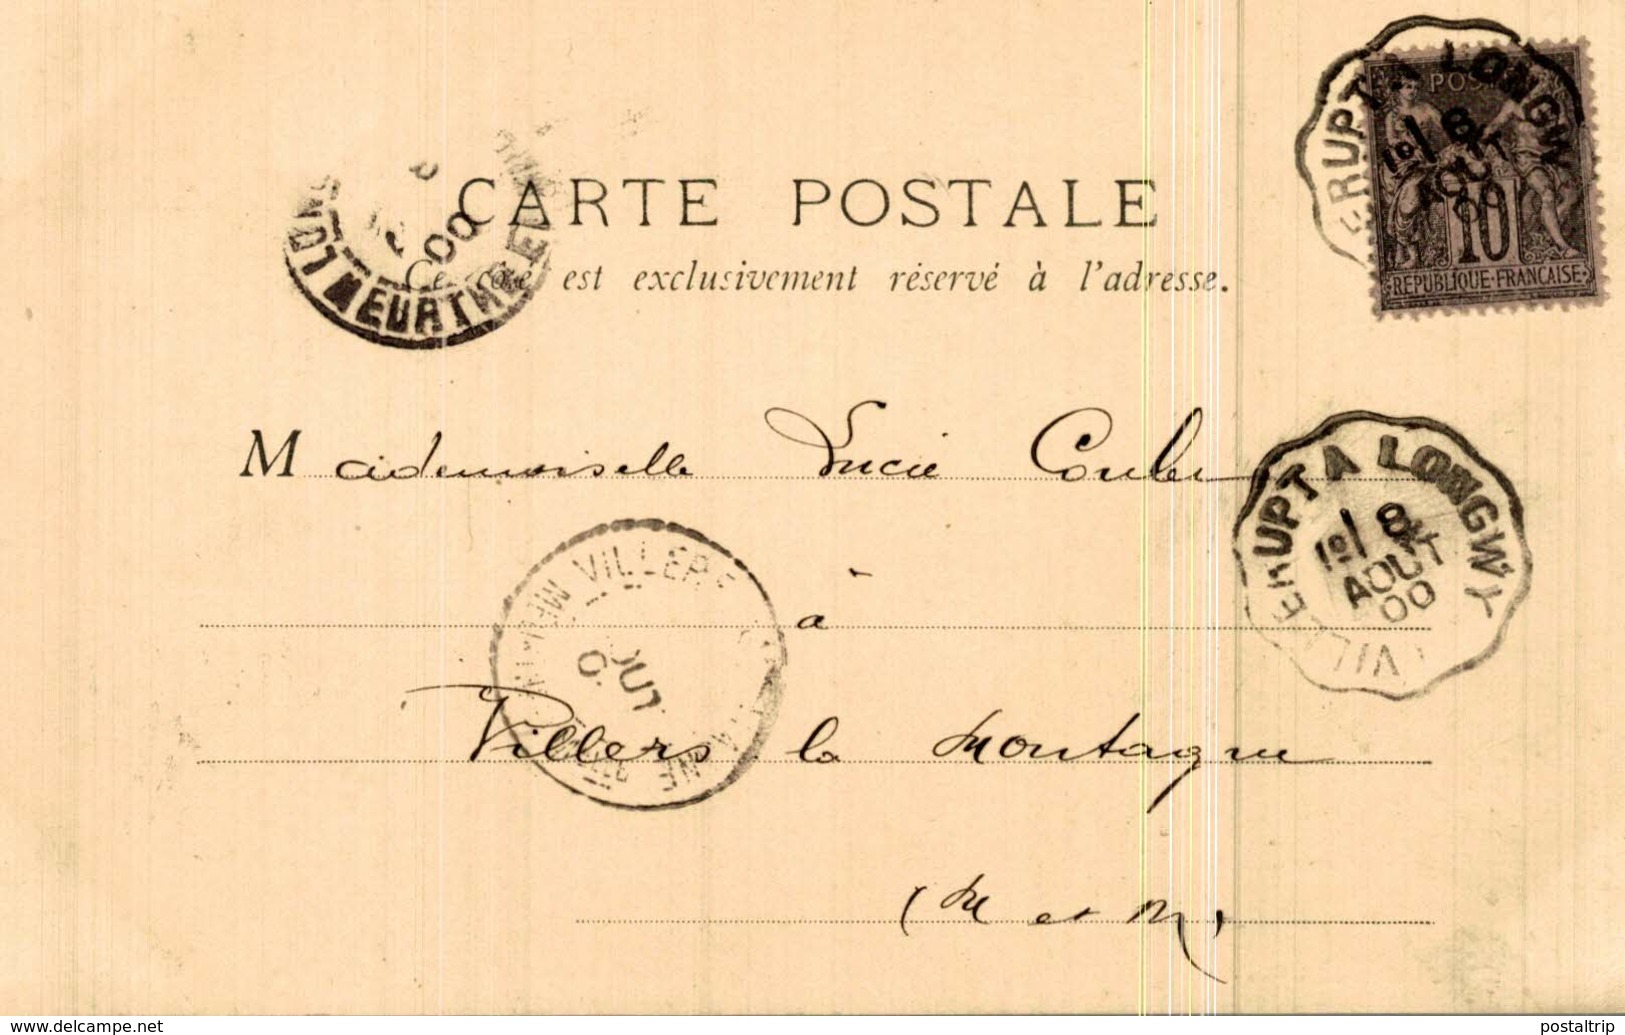 CARTE POSTALE
Ce côté est exclusivement réservé à l'adresse.
POSTES
10
REPUBLIQUE·FRANÇAISE
ERUPT A LONGWY
1º/ 8
AOUT
00
00
MEURTHE
Mademoiselle Lucie
VILLERUPT A LONGWY
1º/ 8
AOUT
00
VILLERS
OUT
à
Villers la Montagne
(M et M)
www.delcampe.net
postaltrip